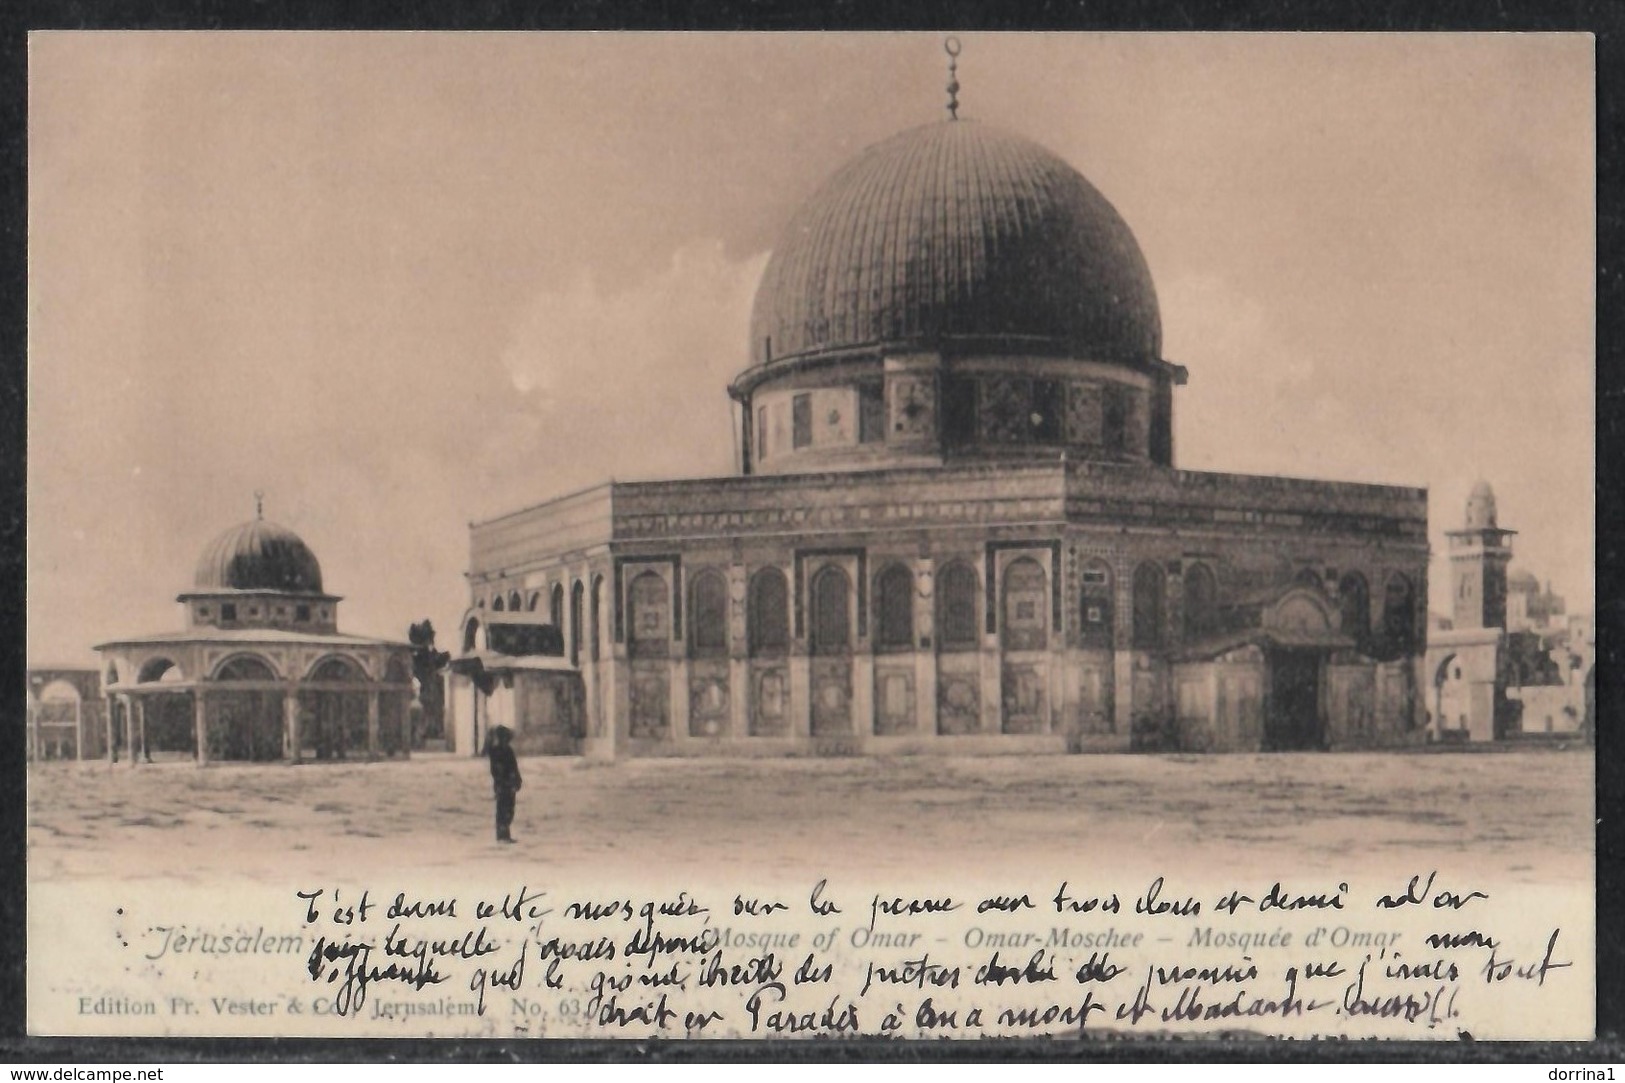 C'est dans cette mosquée, sur la pierre aux trois clous et demi d'or
Jérusalem sur laquelle j'avais déposé Mosque of Omar – Omar-Moschee – Mosquée d'Omar mon
offrande que le grand des prêtres promis que j'irais tout
Edition Fr. Vester & Co. Jerusalem No. 63. droit en Paradis à ma mort et Madame aussi!!
www.delcampe.net
dorrina1